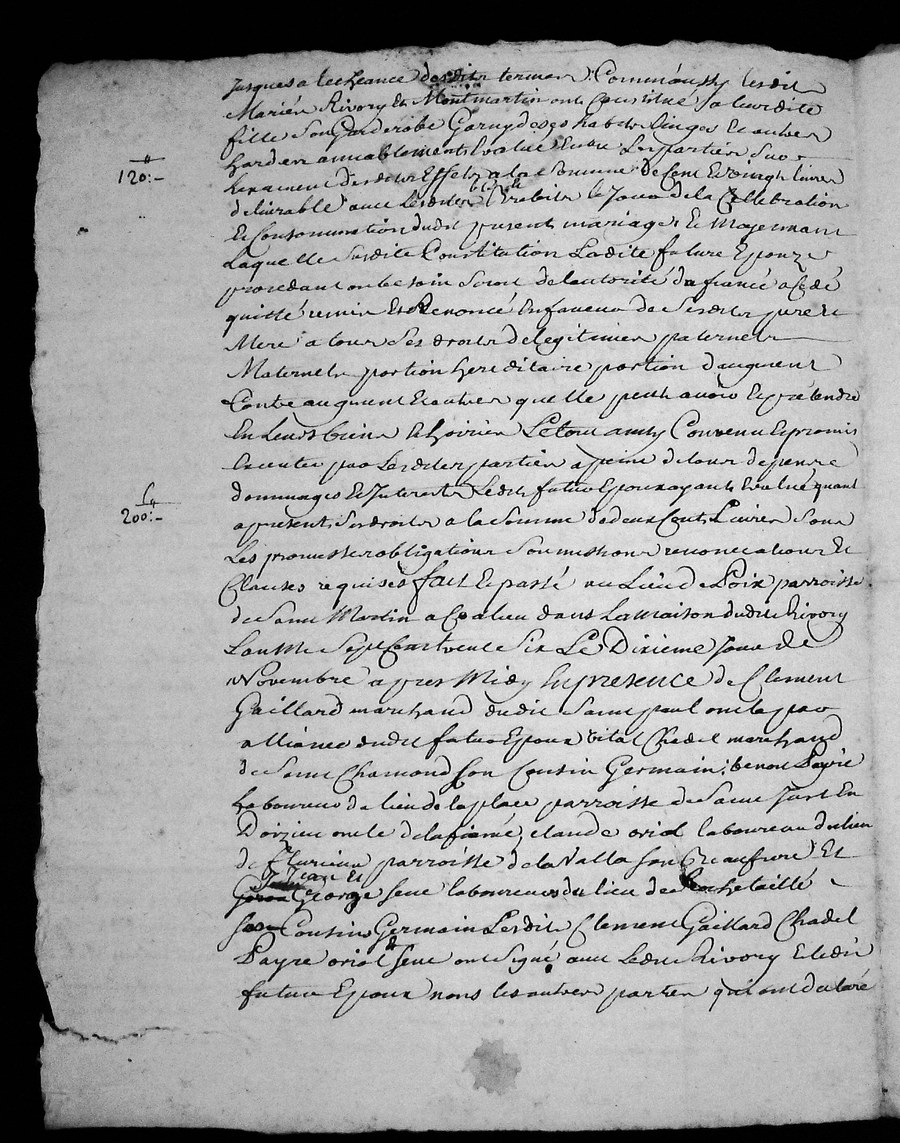 Jusques a lecheance desdits termes, Comm'aussy lesdits
Mariés Rivory et Montmartin ont Constitué a leurdite
fille Son Garderobe Garny de ses habits Linges et autres
hardes amiablement Evalué Entre Les parties
120:- desdits Effets a la Somme de Cent et vingt livres
delivrable aux Lesdits le Jour de la Cellebration
et Consommation dudit present mariage et Moyennant
Laquelle Susdite Constitution Ladite future Epouze
procedant ou besoin Seroit de lautorité du fiancé a Cedé
quitté remis et Renoncé En faveur de Sesdits pere et
Mere a tous Ses droits de legitimes paternels
Maternels portion hereditaire portion daugment
Contre augment et autres quelle peut avoir et pretendre
En Leurs biens et hoiries Le tout ainsy Convenu et promis
Executer par Lesdites parties a peine de tous depens
dommages et Interests Ledit futur Epoux ayant Evalué quant
200:- a present Ses droits a la Somme de deux Cents Livres Sous
Les promesses obligations Soumissions renonciations et
Clauses requises fait et passé au Lieu de Loix parroisse
de Saint Martin a Coalieu dans La maison dudit Rivory
Lan Mil Sept Cent trente Six Le Dixieme Jour de
Novembre apres Midy En presence de Clement
Gaillard marchand dudit Saint paul oncle par
alliance dudit futur Epoux vital Chadel marchand
de Saint Chamond Son Cousin Germain, benoit Payre
Laboureur du lieu de la place parroisse de Saint Just En
Doizieu oncle de la fiancée, claude oriol laboureur du lieu
de Flurieu parroisse de la Valla Son Beaufrere Et
Jean Et
George Seve laboureurs du lieu de Rochetaillé
Cousins Germain Lesdits Clement Gaillard Chadel
Payre oriol Seve ont Signé avec Ledit Rivory et ledit
futur Epoux nons les autres parties qui ont declaré